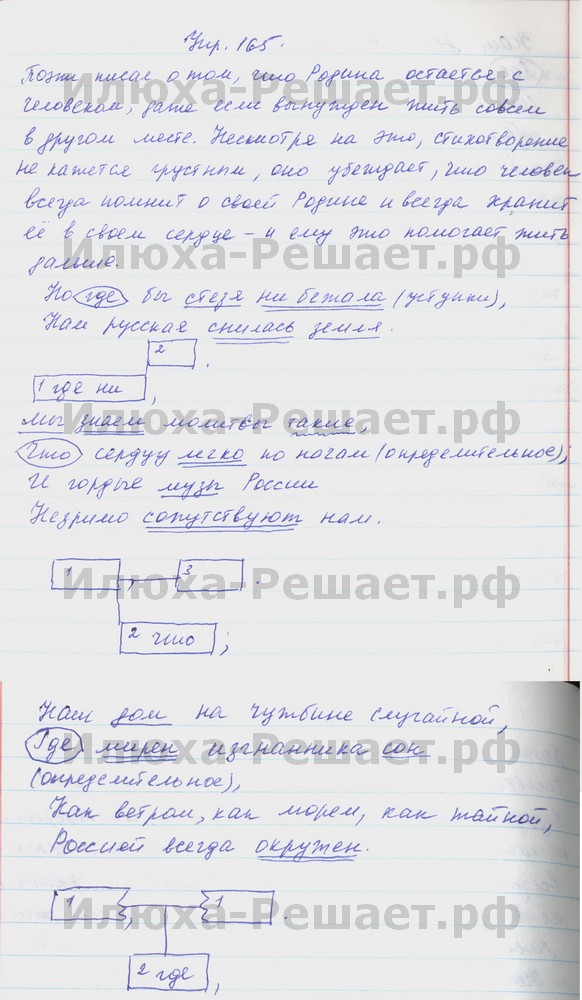 Упр. 165.
Поэт писал о том, что Родина остается с
человеком, даже если вынужден жить совсем
в другом месте. Несмотря на это, стихотворение
не кажется грустным, оно убеждает, что человек
всегда помнит о своей Родине и всегда хранит
её в своем сердце – и ему это помогает жить
дальше.
Но где бы стезя ни бежала (уступки),
Нам русская снилась земля.
2
.
1 где ни
,
Мы знаем молитвы такие,
Что сердцу легко по ночам (определительное);
И гордые музы России
Незримо сопутствуют нам.
1 , 3 .
2 что ;
Наш дом на чужбине случайной,
Где мирен изгнанника сон
(определительное),
Как ветром, как морем, как тайной,
Россией всегда окружен.
1 , 1 .
2 где ,
Илюха-Решает.рф
Илюха-Решает.рф
Илюха-Решает.рф
Илюха-Решает.рф
Илюха-Решает.рф
Илюха-Решает.рф